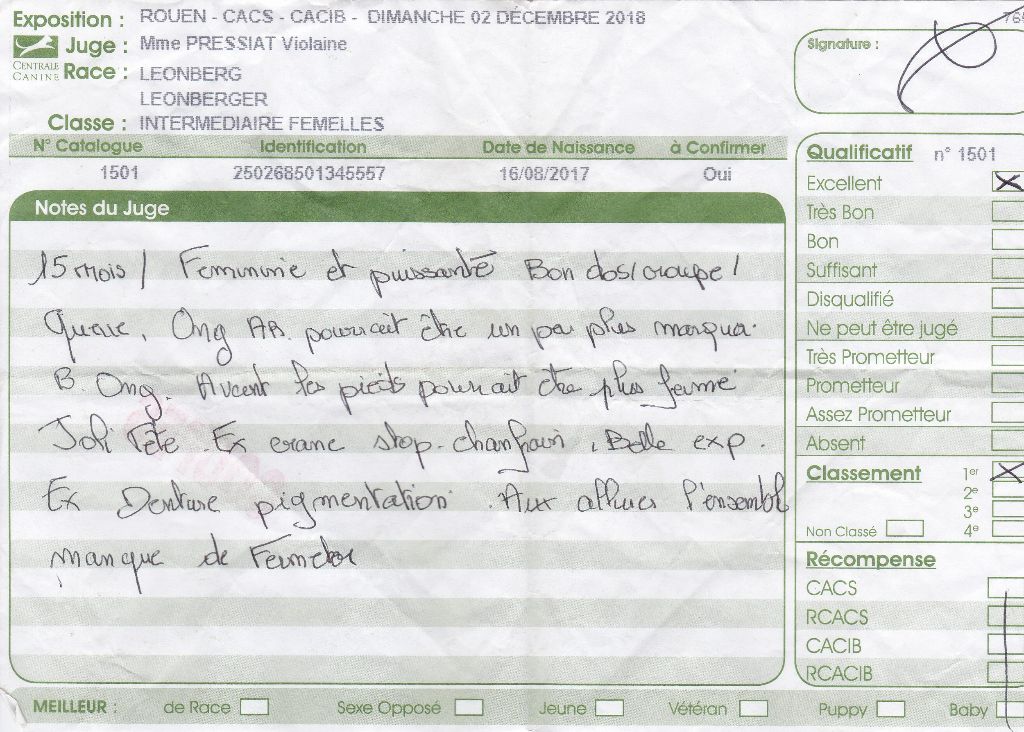 Exposition : ROUEN - CACS - CACIB - DIMANCHE 02 DÉCEMBRE 2018
Juge : Mme PRESSIAT Violaine
CENTRALE CANINE
Race : LEONBERG
LEONBERGER
Classe : INTERMEDIAIRE FEMELLES
N° Catalogue Identification Date de Naissance à Confirmer
1501 250268501345557 16/08/2017 Oui
Notes du Juge
15 mois / Feminine et puissante Bon dos/croupe/
Queue. Ong AR. pourrait être un peu plus marqua.
B. Ong. Avant les pieds pourrait être plus ferme
Joli Tête. Ex crane stop-chanfrain. Belle exp.
Ex Denture pigmentation. Aux allures l'ensembl
manque de Fermeté
MEILLEUR : de Race Sexe Opposé Jeune Vétéran Puppy Baby
Signature :
Qualificatif n° 1501
Excellent X
Très Bon
Bon
Suffisant
Disqualifié
Ne peut être jugé
Très Prometteur
Prometteur
Assez Prometteur
Absent
Classement 1er X
2e
3e
Non Classé 4e
Récompense
CACS
RCACS
CACIB
RCACIB